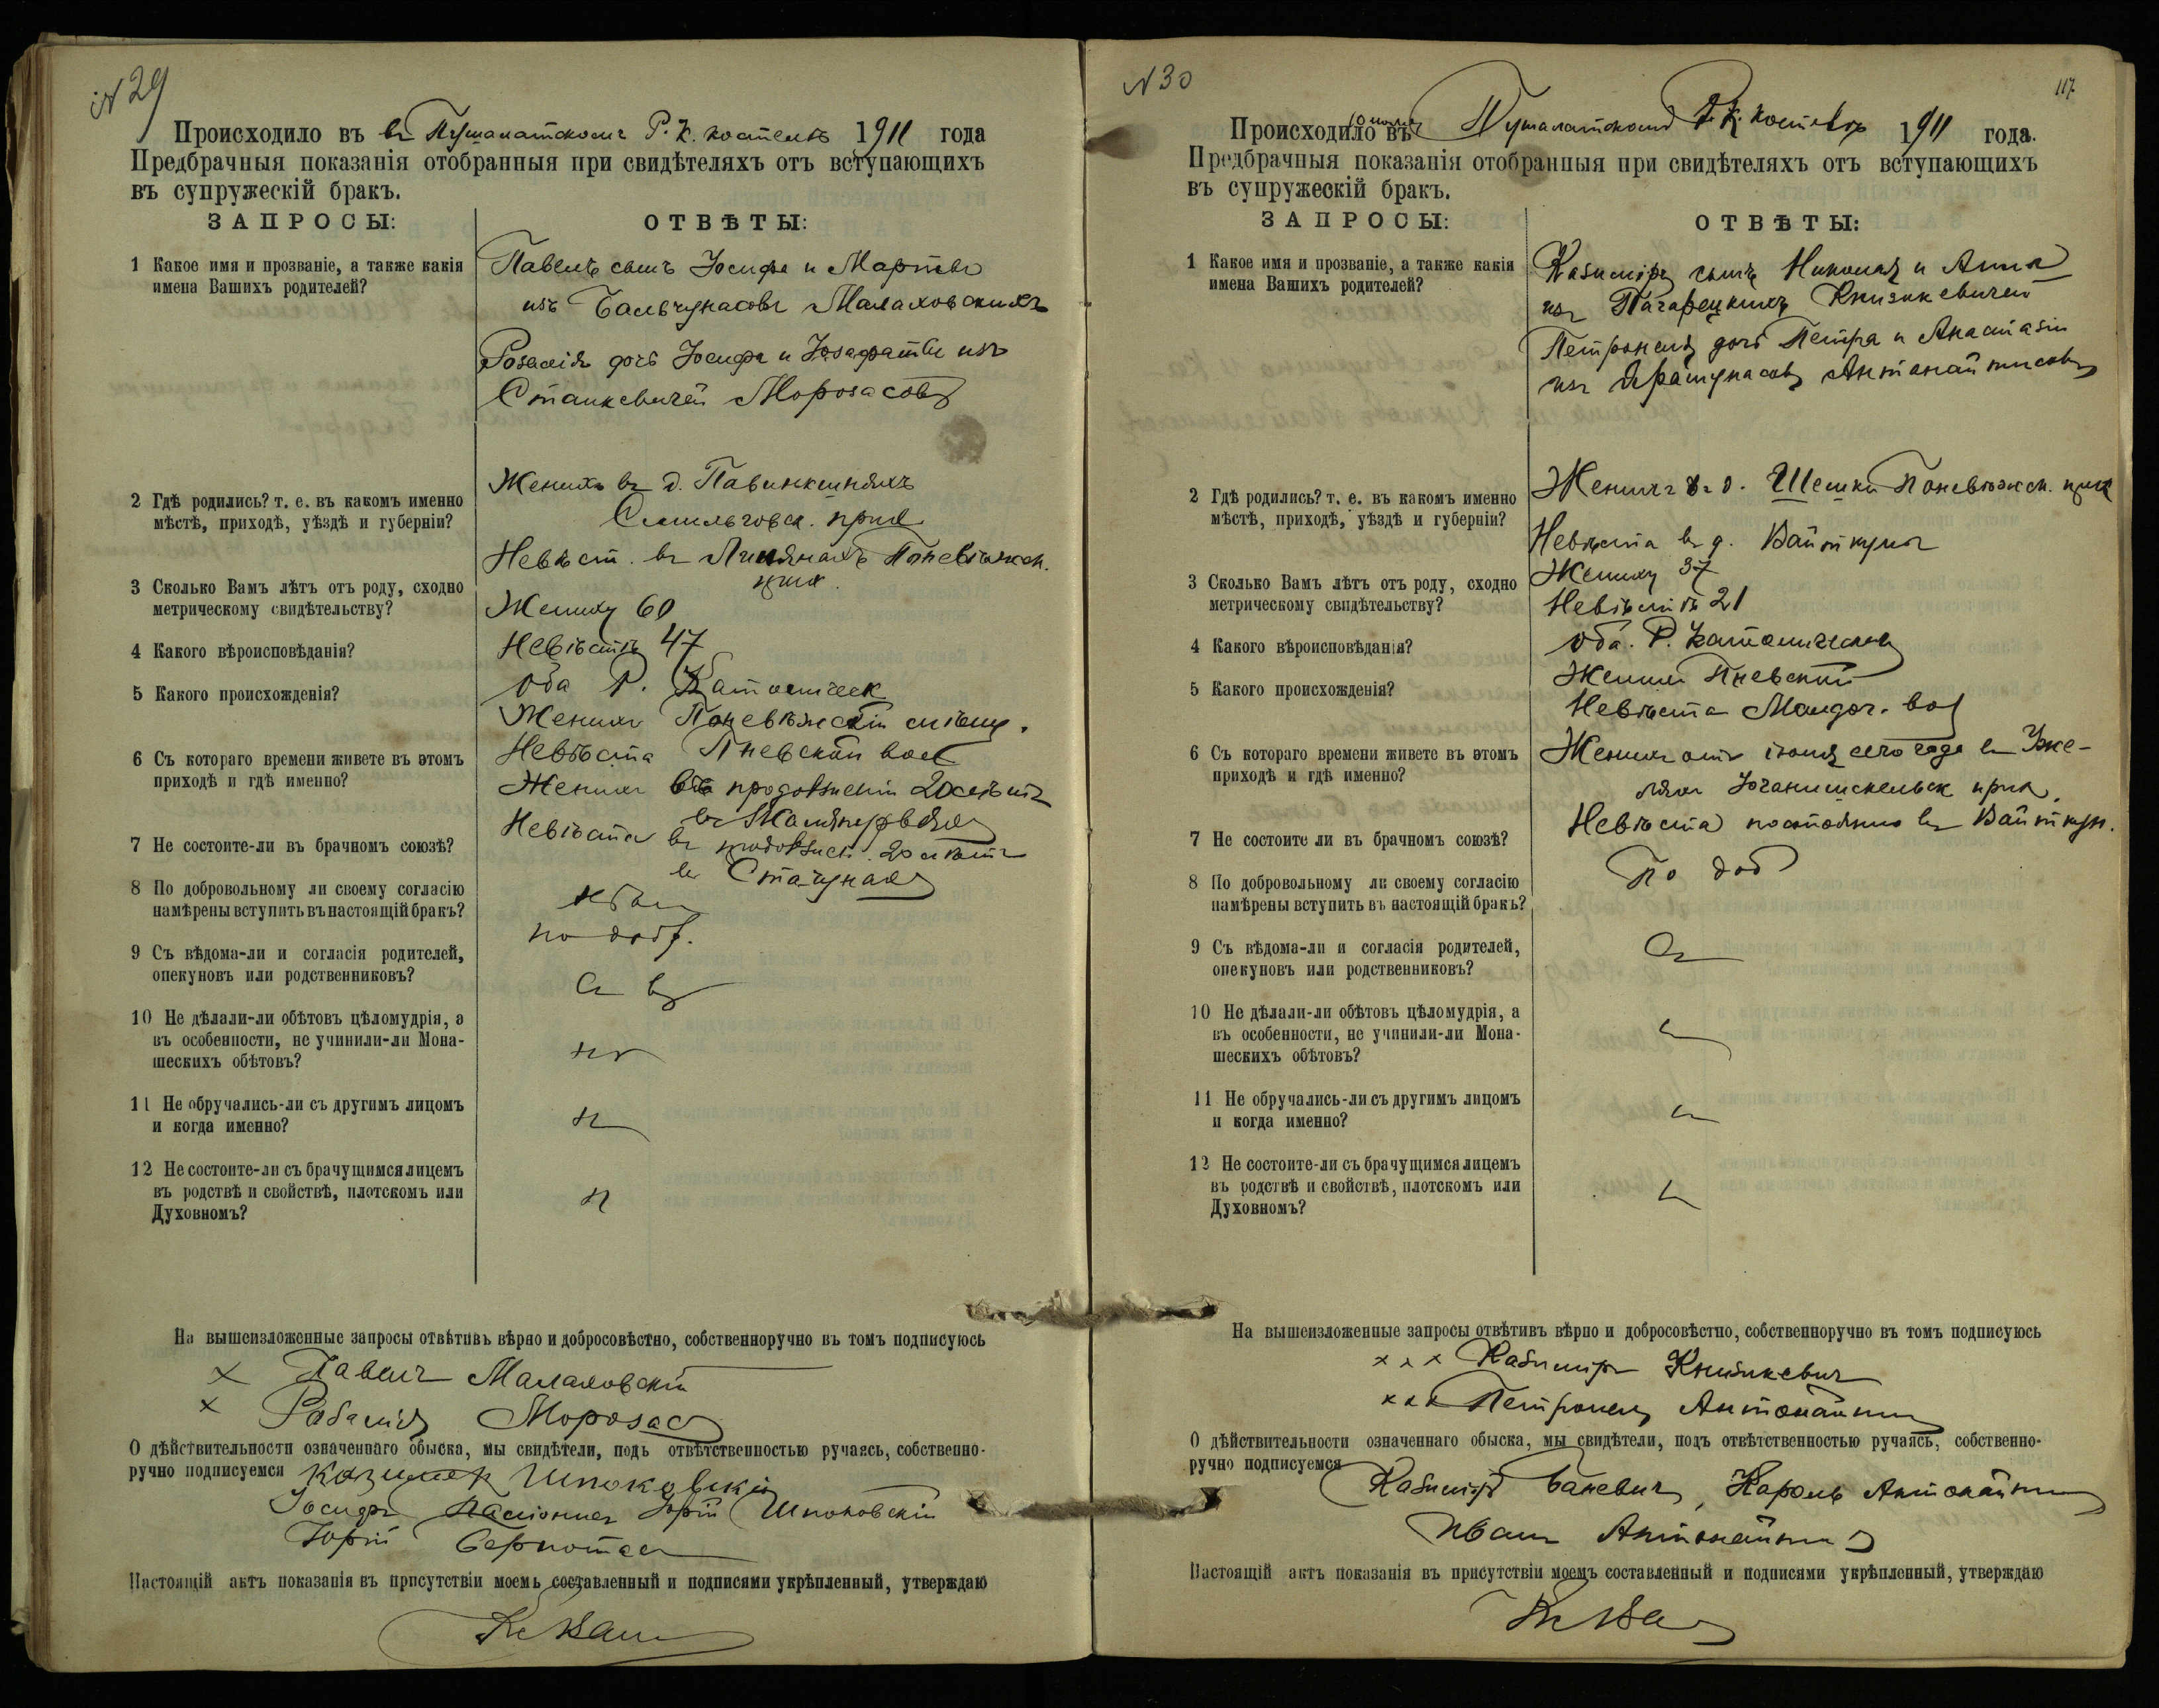 N 29
Происходило въ въ Пушалатскомъ Р. К. костелѣ 1911 года
Предбрачныя показанія отобранныя при свидѣтеляхъ отъ вступающихъ
въ супружескій бракъ.
ЗАПРОСЫ: ОТВѢТЫ:
1 Какое имя и прозваніе, а также какія
имена Вашихъ родителей?
Павелъ сынъ Іосифа и Марты
изъ Бальчунасовъ Малаховскихъ
Розалія дочь Іосифа и Іозафаты изъ
Станкевичей Морозасовъ
2 Гдѣ родились? т. е. въ какомъ именно
мѣстѣ, приходѣ, уѣздѣ и губерніи?
Женихъ въ д.
Смильговск. прих.
Невѣст. въ Поневѣжск.
прих.
3 Сколько Вамъ лѣтъ отъ роду, сходно
метрическому свидѣтельству?
Жениху 60
Невѣстѣ 47
4 Какого вѣроисповѣданія?
оба Р. Католическ
5 Какого происхожденія?
Женихъ Поневѣжскій мѣщ.
Невѣста Пневской вол
6 Съ котораго времени живете въ этомъ
приходѣ и гдѣ именно?
Женихъ въ продолженіи 20 лѣтъ
въ
Невѣста въ продолжен. 20 лѣтъ
въ Стачунахъ
7 Не состоите-ли въ брачномъ союзѣ?
8 По добровольному ли своему согласію
намѣрены вступить въ настоящій бракъ?
по добр.
9 Съ вѣдома-ли и согласія родителей,
опекуновъ или родственниковъ?
Съ вѣ
10 Не дѣлали-ли обѣтовъ цѣломудрія, а
въ особенности, не учинили-ли Мона-
шескихъ обѣтовъ?
11 Не обручались-ли съ другимъ лицомъ
и когда именно?
12 Не состоите-ли съ брачущимся лицемъ
въ родствѣ и свойствѣ, плотскомъ или
Духовномъ?
На вышеизложенные запросы отвѣтивъ вѣрно и добросовѣстно, собственноручно въ томъ подписуюсь
х Павелъ Малаховскій
х Розалія Морозасъ
О дѣйствительности означеннаго обыска, мы свидѣтели, подъ отвѣтственностью ручаясь, собственно-
ручно подписуемся Казимер Шпоковскій
Іосифъ Юрій Шпоковскій
Юрій Бернотасъ
Настоящій актъ показанія въ присутствіи моемъ составленный и подписями укрѣпленный, утверждаю
N 30
117
Происходило въ Пушалатскомъ Р. К. костелѣ 1911 года.
Предбрачныя показанія отобранныя при свидѣтеляхъ отъ вступающихъ
въ супружескій бракъ.
ЗАПРОСЫ: ОТВѢТЫ:
1 Какое имя и прозваніе, а также какія
имена Вашихъ родителей?
Казиміръ сынъ Николая и Анны
изъ Книзикевичей
Петронеля дочь Петра и Анастазіи
изъ Антонайтисовъ
2 Гдѣ родились? т. е. въ какомъ именно
мѣстѣ, приходѣ, уѣздѣ и губерніи?
Женихъ въ д. Шешки Поневѣжск. прих
Невѣста въ д. Вайткуны
3 Сколько Вамъ лѣтъ отъ роду, сходно
метрическому свидѣтельству?
Жениху 37
Невѣстѣ 21
4 Какого вѣроисповѣданія?
оба. Р. Католическ
5 Какого происхожденія?
Женихъ Пневской
Невѣста вол
6 Съ котораго времени живете въ этомъ
приходѣ и гдѣ именно?
Женихъ отъ іюня сего года въ
прих.
Невѣста постоянно въ Вайткун.
7 Не состоите ли въ брачномъ союзѣ?
8 По добровольному ли своему согласію
намѣрены вступить въ настоящій бракъ?
По доб
9 Съ вѣдома-ли и согласія родителей,
опекуновъ или родственниковъ?
Съ
10 Не дѣлали-ли обѣтовъ цѣломудрія, а
въ особенности, не учинили-ли Мона-
шескихъ обѣтовъ?
11 Не обручались-ли съ другимъ лицомъ
и когда именно?
12 Не состоите-ли съ брачущимся лицемъ
въ родствѣ и свойствѣ, плотскомъ или
Духовномъ?
На вышеизложенные запросы отвѣтивъ вѣрно и добросовѣстно, собственноручно въ томъ подписуюсь
х х х Казиміръ Книзикевичъ
х х х Петронеля Антонайтисъ
О дѣйствительности означеннаго обыска, мы свидѣтели, подъ отвѣтственностью ручаясь, собственно-
ручно подписуемся
Казиміръ Баневичъ, Кароль Антонайтисъ
Иванъ Антонайтисъ
Настоящій актъ показанія въ присутствіи моемъ составленный и подписями укрѣпленный, утверждаю